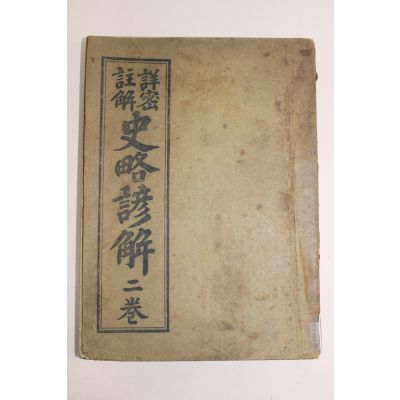 詳密
註解
史略諺解
二卷